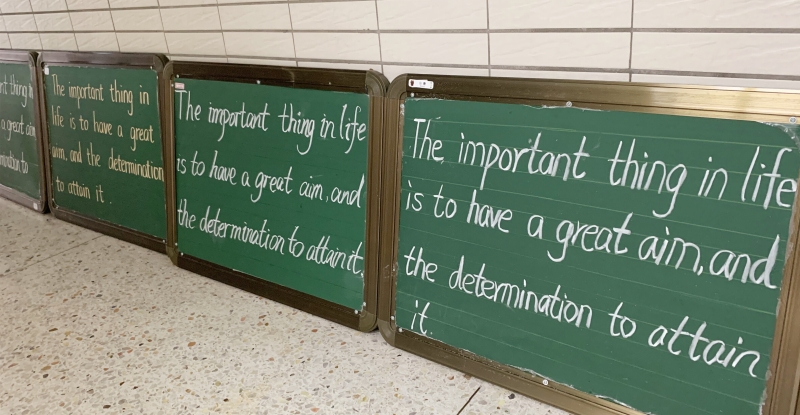 nt thing in
a great aim
mination to
The important thing in
life is to have a great
aim, and the determination
to attain it.
The important thing in life
is to have a great aim, and
the determination to attain it.
The important thing in life
is to have a great aim, and
the determination to attain
it.